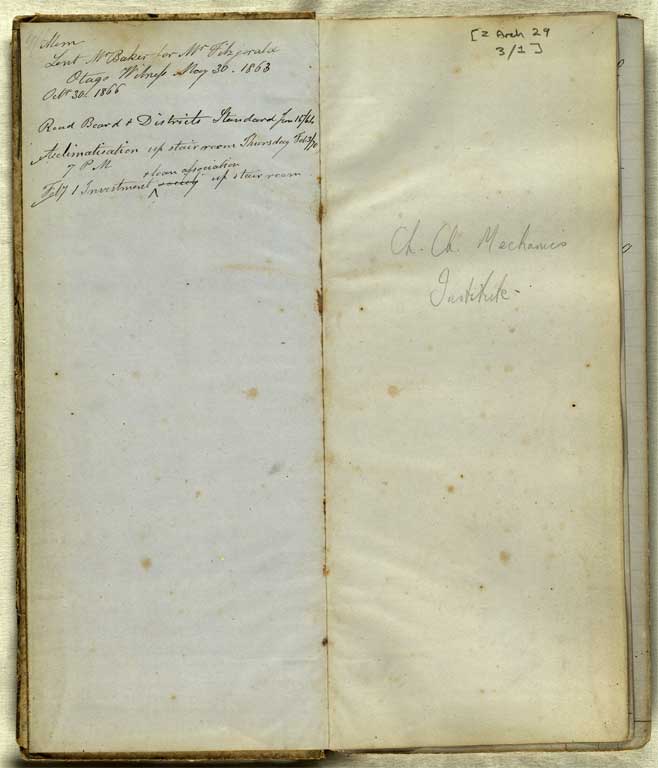 Mem
Lent Mr Baker for Mr Fitzgerald
Otago Witness May 30. 1863
Octr 30. 1866
Road Board & Districts Standard Jan
Acclimatisation up stair room Thursday Feb
7 PM
& loan association
Feby 1 Investment society up stair room
[Z Arch 29
3/1]
Ch. Ch. Mechanics
Institute